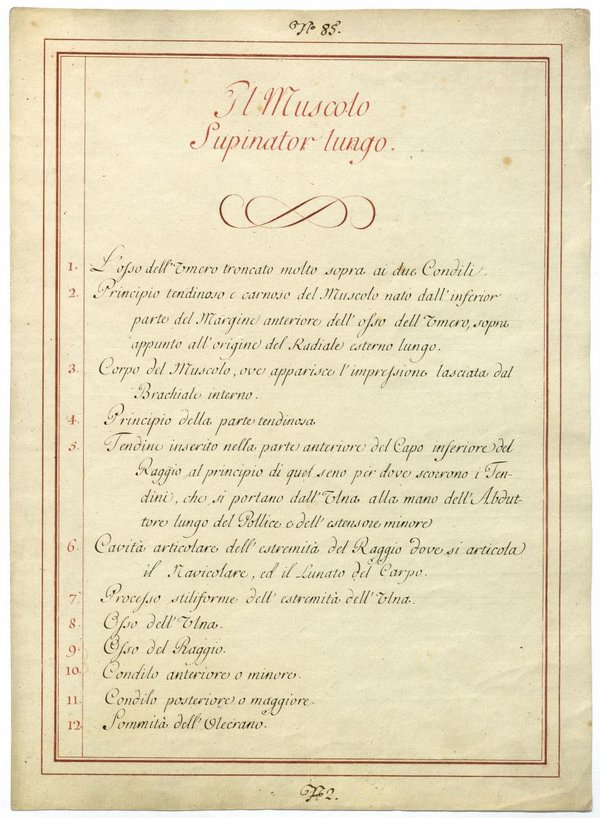 N.º 85.
Il Muscolo
Supinator lungo.
1. L'osso dell'Umero troncato molto sopra ai due Condili.
2. Principio tendinoso e carnoso del Muscolo nato dall'inferior
parte del Margine anteriore dell'osso dell'Umero, sopra
appunto all'origine del Radiale esterno lungo.
3. Corpo del Muscolo, ove apparisce l'impressione lasciata dal
Brachiale interno.
4. Principio della parte tendinosa
5. Tendine inserito nella parte anteriore del Capo inferiore del
Raggio al principio di quel seno per dove scorrono i Ten-
dini, che si portano dall'Ulna alla mano dell'Abdut-
tore lungo del Pollice e dell'estensore minore
6. Cavità articolare dell'estremità del Raggio dove si articola
il Navicolare, ed il Lunato del Carpo.
7. Processo stiliforme dell'estremità dell'Ulna.
8. Osso dell'Ulna.
9. Osso del Raggio.
10. Condilo anteriore o minore.
11. Condilo posteriore o maggiore.
12. Sommità dell'Olecrano.
N.º 2.